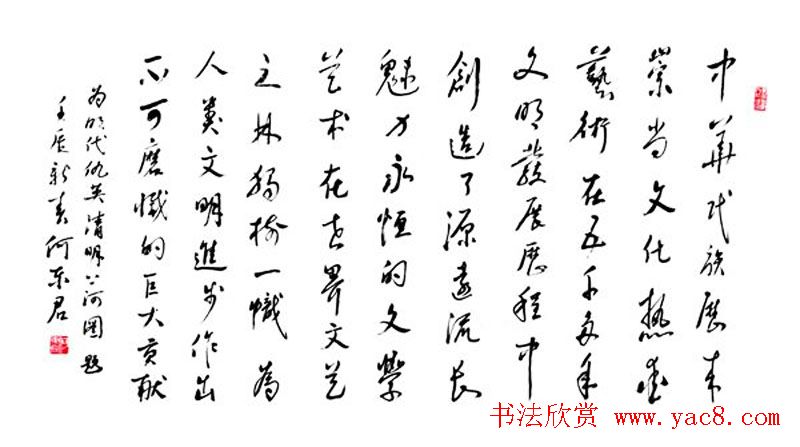 中華民族歷來
崇尚文化热爱
藝術在五千多年
文明發展歷程中
創造了源遠流长
魅力永恒的文學
艺术在世界文艺
之林獨樹一幟為
人类文明進步作出
不可磨憾的巨大贡献
为明代仇英清明上河图題
壬辰新春何東君
书法欣赏 www.yac8.com